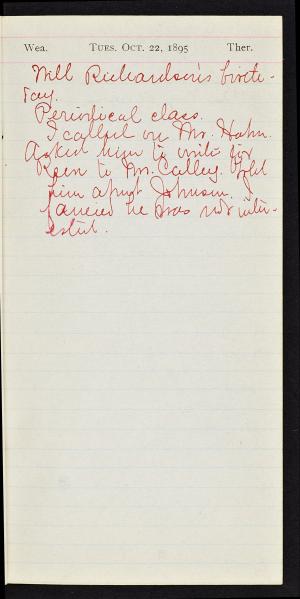 Wea. TUES. OCT. 22, 1895 Ther.
Will Richardson's birth-
day.
Periodical class.
I called on Mr. Hahn.
Asked him to write for
to Mr. Calley. Told
him about Johnson. I
fancied he was not inter-
ested.